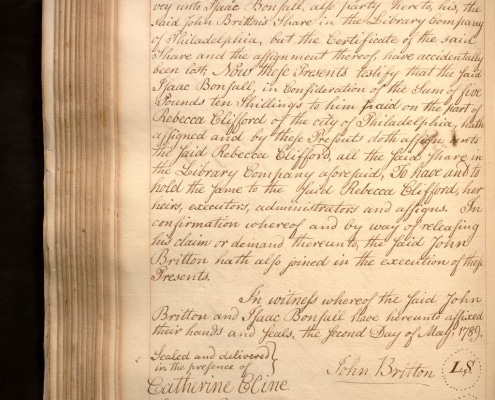 vey unto Isaac Bonsall, also party thereto, his, the
said John Britton's Share in the Library Company
of Philadelphia, but the Certificate of the said
Share and the assignment thereof, have accidentally
been lost; Now these Presents testify that the said
Isaac Bonsall, in Consideration of the Sum of five
Pounds ten Shillings to him paid on the part of
Rebecca Clifford of the city of Philadelphia, hath
assigned and by these Presents doth assign unto
the said Rebecca Clifford, all the said Share in
the Library Company aforesaid, To have and to
hold the same to the said Rebecca Clifford, her
heirs, executors, administrators and assigns. In
confirmation whereof and by way of releasing
his claim or demand thereunto, the said John
Britton hath also joined in the execution of these
Presents.
In witness whereof the said John
Britton and Isaac Bonsall have hereunto affixed
their hands and Seals, the Second Day of May, 1789.
Sealed and delivered
in the presence of
John Britton L.S
Catherine Cline